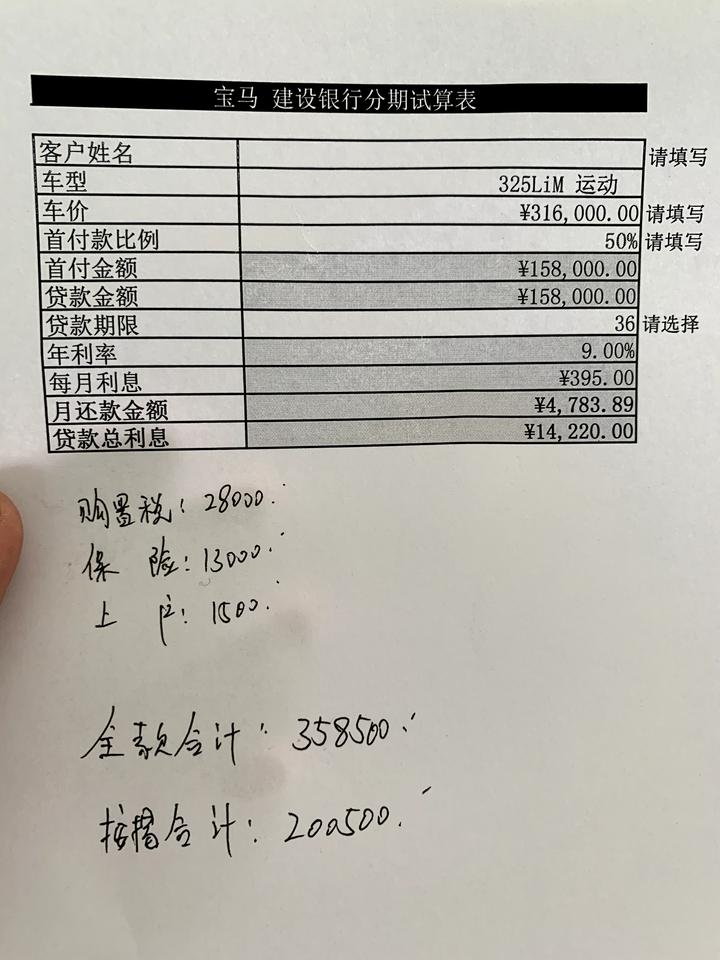 宝马 建设银行分期试算表
客户姓名 请填写
车型 325LiM 运动
车价 ¥316,000.00 请填写
首付款比例 50% 请填写
首付金额 ¥158,000.00
贷款金额 ¥158,000.00
贷款期限 36 请选择
年利率 9.00%
每月利息 ¥395.00
月还款金额 ¥4,783.89
贷款总利息 ¥14,220.00
购置税: 28000.
保 险: 13000.
上 户: 1500.
全款合计: 358500.
按揭合计: 200500.